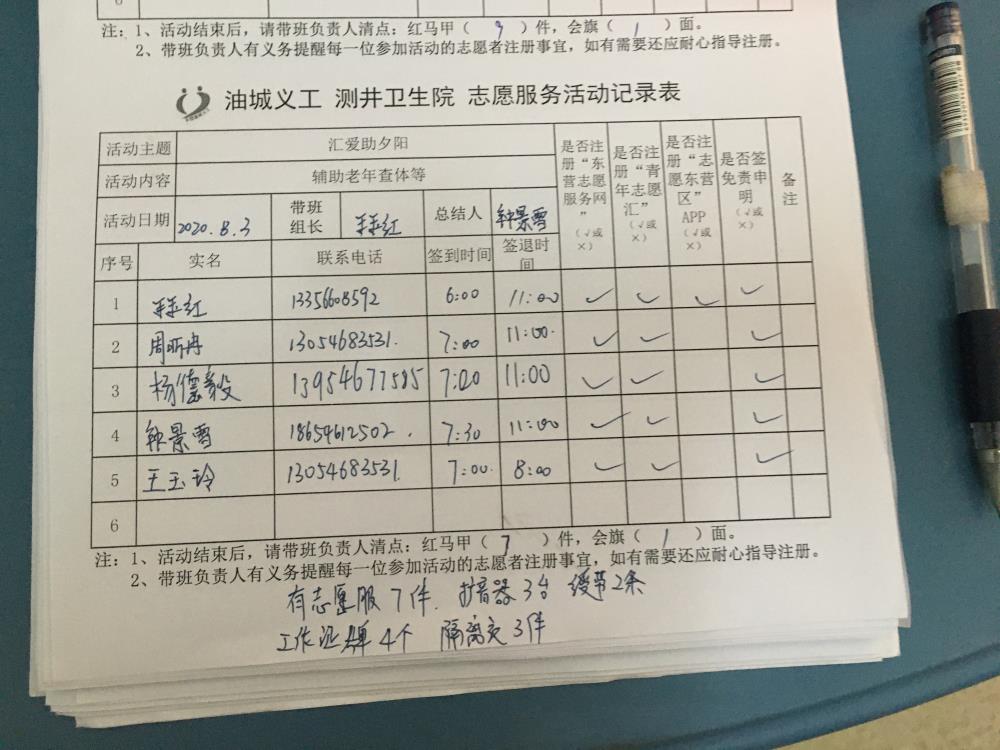 注：1、活动结束后，请带班负责人清点：红马甲（ 7 ）件，会旗（ 1 ）面。
2、带班负责人有义务提醒每一位参加活动的志愿者注册事宜，如有需要还应耐心指导注册。
油城义工 测井卫生院 志愿服务活动记录表
活动主题 汇爱助夕阳 是否注册“东营志愿服务网”（√或×） 是否注册“青年志愿汇”（√或×） 是否注册“志愿东营区”APP（√或×） 是否签免责申明（√或×） 备注
活动内容 辅助老年查体等
活动日期 2020.8.3 带班组长 总结人 钟景雪
序号 实名 联系电话 签到时间 签退时间
1 13356608592 6:00 11:00 ✓ ✓ ✓ ✓
2 周昕冉 13054683531. 7:00 11:00. ✓ ✓ ✓
3 杨德毅 13954677585 7:20 11:00 ✓ ✓ ✓
4 钟景雪 18654612502. 7:30 11:00 ✓ ✓ ✓
5 王玉玲 13054683531. 7:00. 8:00 ✓ ✓ ✓
6
注：1、活动结束后，请带班负责人清点：红马甲（ 7 ）件，会旗（ 1 ）面。
2、带班负责人有义务提醒每一位参加活动的志愿者注册事宜，如有需要还应耐心指导注册。
有志愿服7件. 扩音器3台 绶带2条
工作证牌4个 隔离衣3件